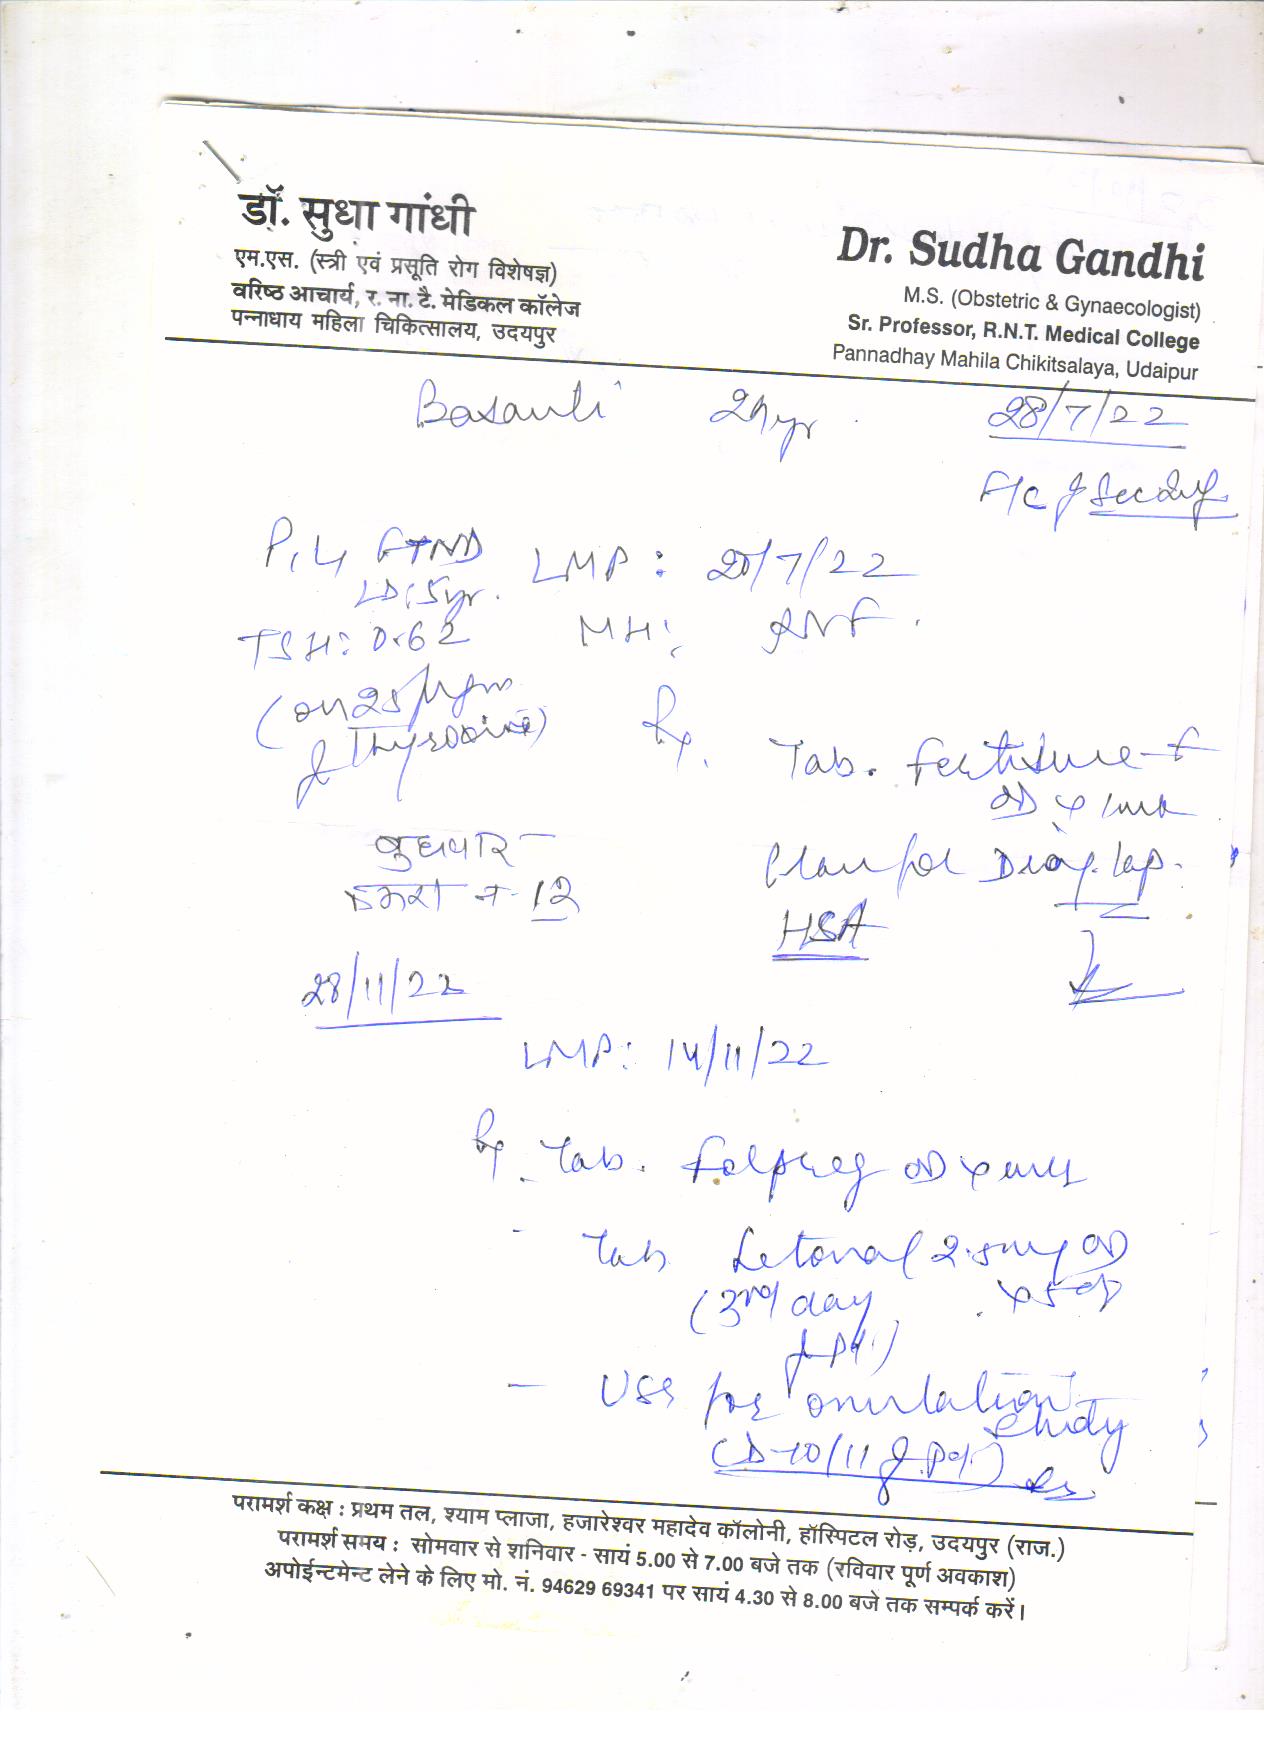 डॉ. सुधा गांधी
एम.एस. (स्त्री एवं प्रसूति रोग विशेषज्ञ)
वरिष्ठ आचार्य, र. ना. टै. मेडिकल कॉलेज
पन्नाधाय महिला चिकित्सालय, उदयपुर
Dr. Sudha Gandhi
M.S. (Obstetric & Gynaecologist)
Sr. Professor, R.N.T. Medical College
Pannadhay Mahila Chikitsalaya, Udaipur
28/7/22
P1L1 FTND LMP: 20/7/22
LD: 5yr.
TSH: 0.62 MH:
(on 25 μgm
of Thyroxine)
Rx
Tab. Fertisure-F
OD x
बुधवार Plan for Diag. lap.
कमरा न-12
28/11/22
LMP: 14/11/22
Rx Tab. Folpreg OD x
- Tab 2.5mg OD
(3rd day x 5d
of)
- USG for ovulation
study
(D-10/11 of)
परामर्श कक्ष : प्रथम तल, श्याम प्लाजा, हजारेश्वर महादेव कॉलोनी, हॉस्पिटल रोड़, उदयपुर (राज.)
परामर्श समय : सोमवार से शनिवार - सायं 5.00 से 7.00 बजे तक (रविवार पूर्ण अवकाश)
अपोईन्टमेन्ट लेने के लिए मो. नं. 94629 69341 पर सायं 4.30 से 8.00 बजे तक सम्पर्क करें।